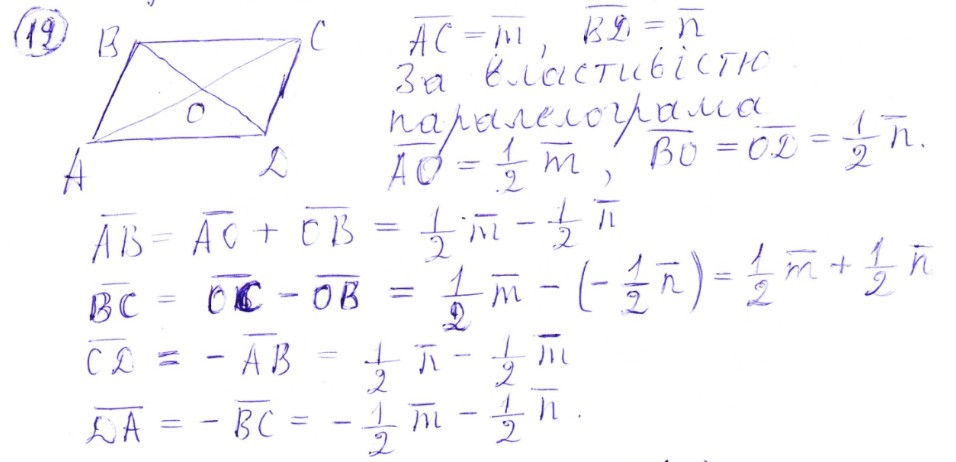 19
B C
O
A D
A̅C̅ = m̅, B̅D̅ = n̅
За властивістю
паралелограма
A̅O̅ = 1/2 m̅, B̅O̅ = O̅D̅ = 1/2 n̅.
A̅B̅ = A̅O̅ + O̅B̅ = 1/2 m̅ - 1/2 n̅
B̅C̅ = O̅C̅ - O̅B̅ = 1/2 m̅ - (- 1/2 n̅) = 1/2 m̅ + 1/2 n̅
C̅D̅ = - A̅B̅ = 1/2 n̅ - 1/2 m̅
D̅A̅ = - B̅C̅ = - 1/2 m̅ - 1/2 n̅.